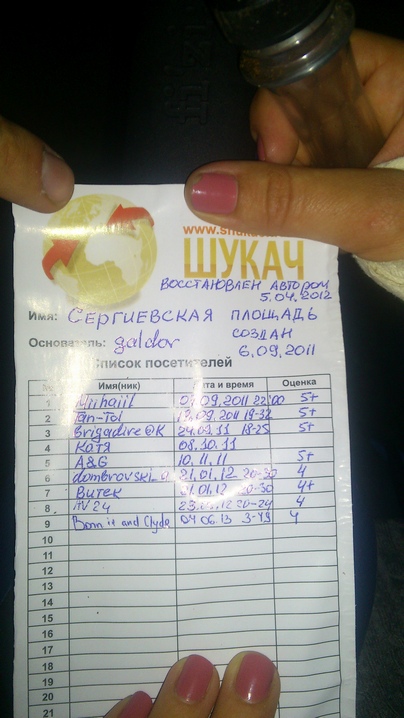 www.shuka
ШУКАЧ
ВОССТАНОВЛЕН АВТОРОМ
5.04.2012
Имя: СЕРГИЕВСКАЯ ПЛОЩАДЬ
СОЗДАН
Основатель: galdor 6.09.2011
Список посетителей
Имя(ник) Дата и время Оценка
1 Miihaiil 2011 22:00 5+
2 Tan-Tol 2011 19-32 5+
3 brigadireOK 24.09.11 18-25 5+
4 Котя 08.10.11
5 A&G 10.11.11 5+
6 dombrovski_a 21.01.12 20-30 4
7 Витек 21.01.12 20-30 4+
8 20-24 4
9 Bonnie and Clyde 04.06.13 4
10
11
12
13
14
15
16
17
18
19
20
21